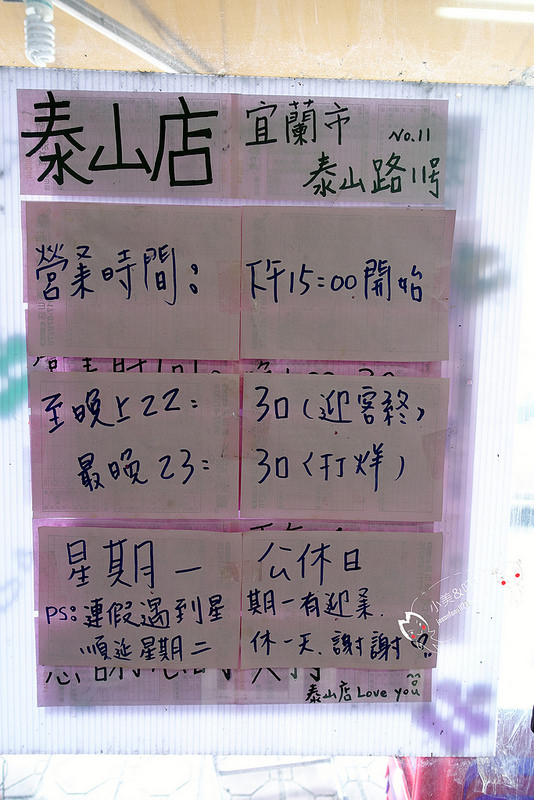 泰山店 宜蘭市 No.11
泰山路11号
營業時間: 下午15:00開始
至晚上22:30(迎客終)
最晚23:30(打烊)
星期一 公休日
PS:連假遇到星期一有迎業.
順延星期二休一天.謝謝
泰山店Love you
小美&